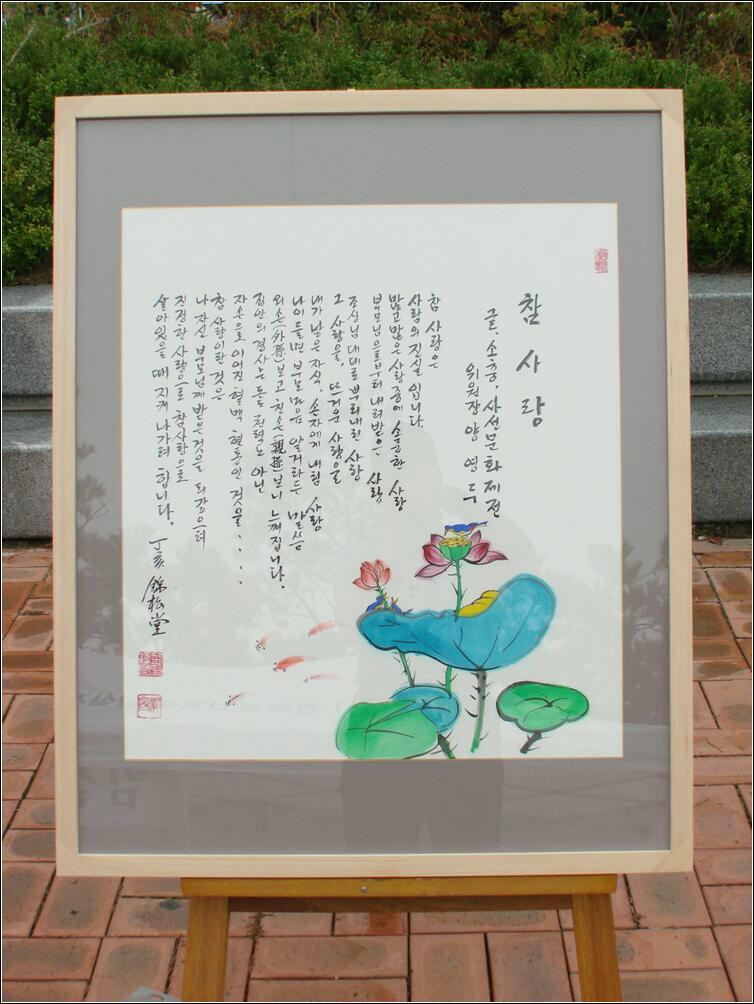 참 사랑
글, 소충, 사선문화제전
위원장 양 영 두
참 사랑은
사람의 진실 입니다.
많고많은 사랑중에 소중한 사랑
부모님으로부터 내려받은 사랑
조상님 대대로 뿌리내린 사랑
그 사랑을, 뜨거운 사랑을
내가 낳은 자식, 손자에게 내림 사랑
나이들면 부모마음 알거라는 말씀
외손(外孫)보고 친손(親孫)보니 느껴집니다.
집안의 경사는 돈도 권력도 아닌
자손으로 이어진 혈맥 혈통인 것을....
참 사랑이란 것은
나 자신 부모님께 받은것을 되갚으며
진정한 사랑으로 참사랑으로
살아있을 때 지켜 나가려 합니다.
丁亥 錦松堂